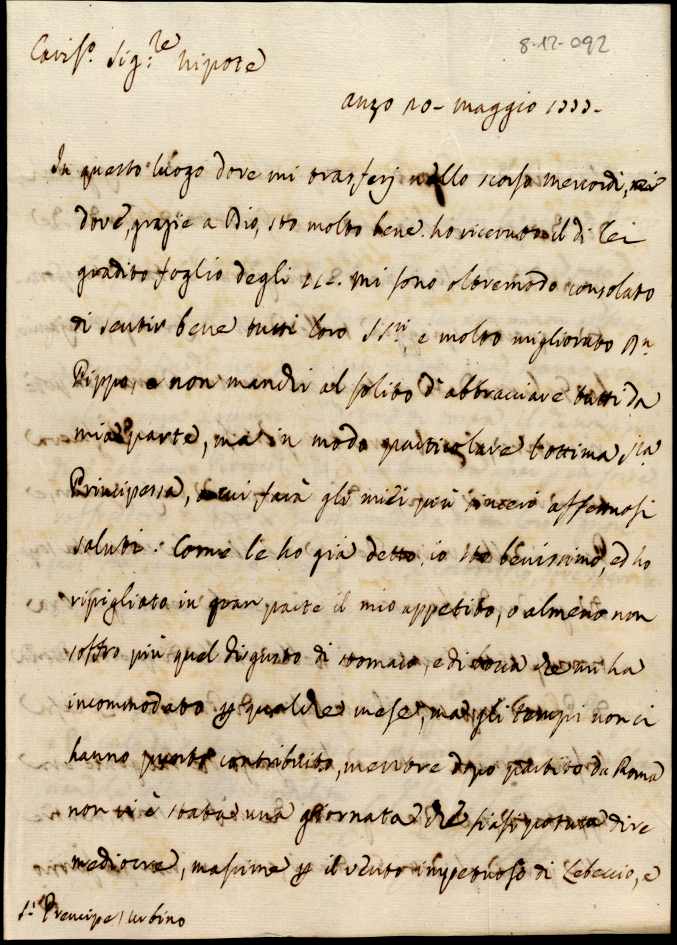 8-12-092
Cariss.o Sig.re Nipote
Anzo 10 maggio 1777.
In questo luogo dove mi trasferj nello scorso mercordì, e
dove, grazie a Dio, sto molto bene. ho ricevuto il di Lei
gradito foglio degli mi sono oltremodo consolato
di sentir bene tutti loro SS.ri, e molto migliorato Dn.
Pippo, e non manchi al solito d'abbracciare tutti da
mia parte, ma in modo particolare l'ottima S.ra
Principessa, a cui farà gli miei più sinceri affettuosi
saluti. Come le ho già detto, io sto benissimo, ed ho
ripigliato in gran parte il mio appetito, o almeno non
soffro più quel disgusto di stomaco, e di bocca che mi ha
incommodato p qualche mese, ma gli tempi non ci
hanno punto contribuito, mentre dopo partito da Roma
non vi è stata una giornata che siasi potuta dire
mediocre, massime p il vento impetuoso di Lebeccio, e
S.r Prencipe